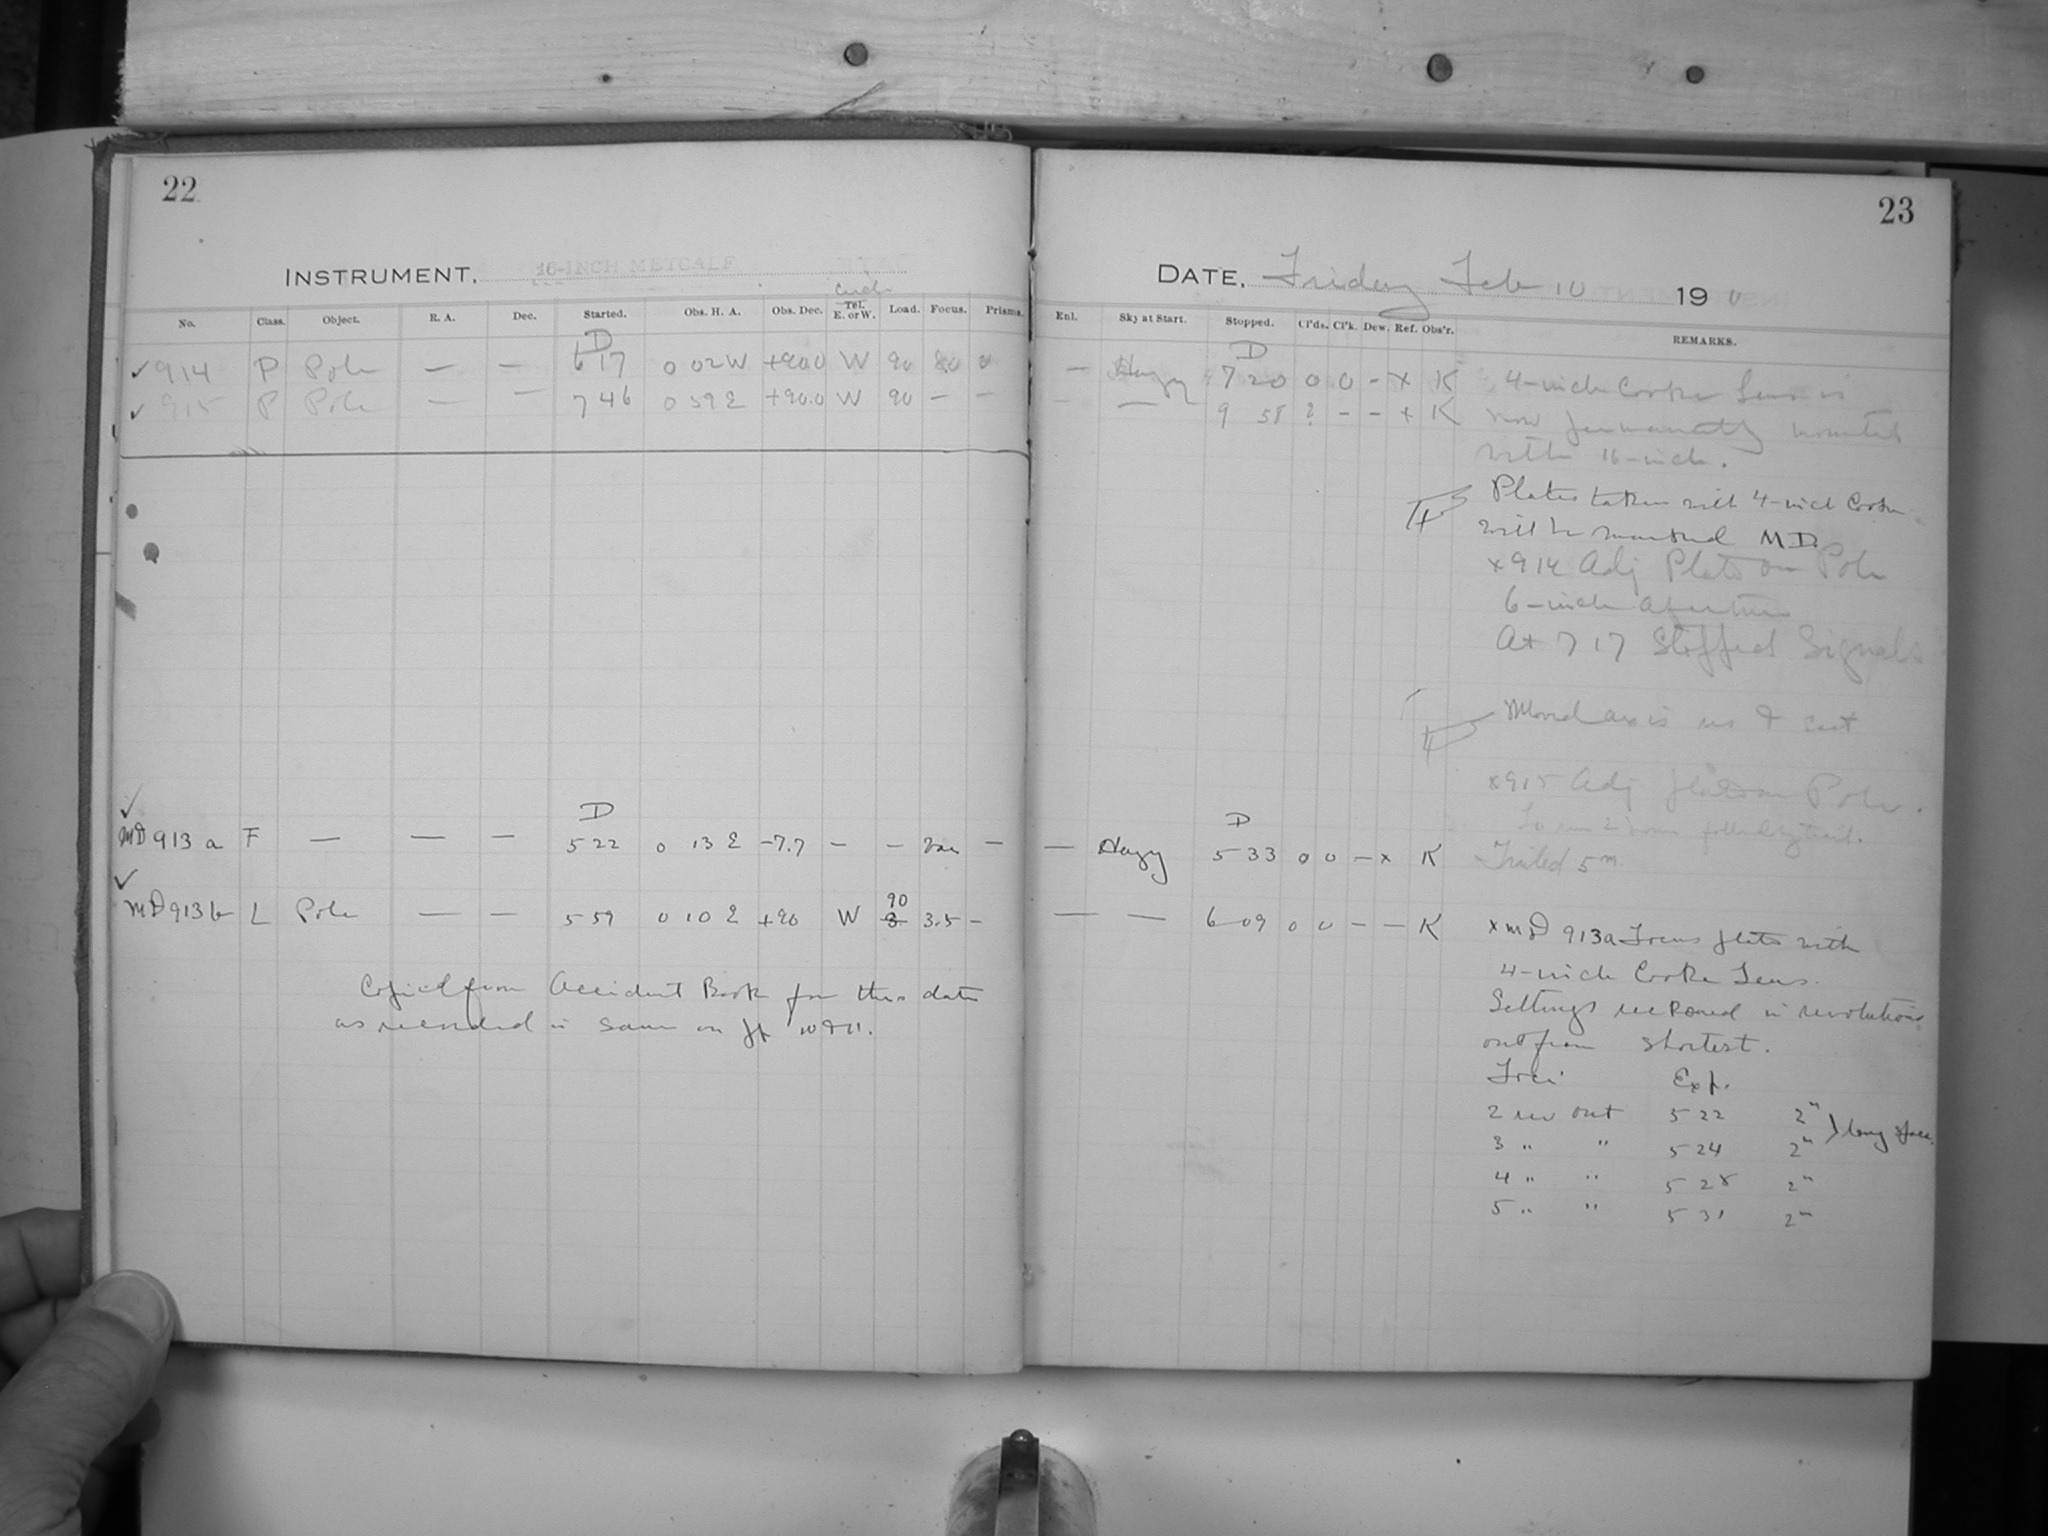 22
INSTRUMENT, 16-INCH METCALF
No. Class. Object. R. A. Dec. Started. Obs. H. A. Obs. Dec. Tel. E. or W. Load. Focus. Prisms.
D
✓ 914 P Pole — — 6 17 0 02 W +90.0 W 90 8.0 0
✓ 915 P Pole — — 7 46 0 59 E +90.0 W 90 — —
✓ D
MD 913 a F — — — 5 22 0 13 E -7.7 - - Var —
✓ 90
MD 913 b L Pole — — 5 59 0 10 E +90 W 3 3.5 -
Copied from Accident Book for this date
as recorded in same on pp 10 & 11.
23
DATE, Friday Feb 10 19
Enl. Sky at Start. Stopped. Cl'ds. Cl'k. Dew. Ref. Obs'r. REMARKS.
D
— Hazy 7 20 0 0 - x K 4-inch Cooke Lens is
— — 9 58 ? - - x K now permanently mounted
with 16-inch.
Plates taken with 4-inch Cooke
will be marked MD.
x 914 Adj Plate on Pole
6-inch aperture
At 7 17 Stopped Signals
Moved axis up & east
x 915 Adj plate on Pole.
D
— Hazy 5 33 0 0 - x K Trailed 5m.
— — 6 09 0 0 - - K x MD 913a Focus plate with
4-inch Cooke Lens.
Settings reckoned in revolutions
out from shortest.
Foci Exp.
2 rev out 5 22 2m } long space
3 " " 5 24 2m
4 " " 5 28 2m
5 " " 5 31 2m